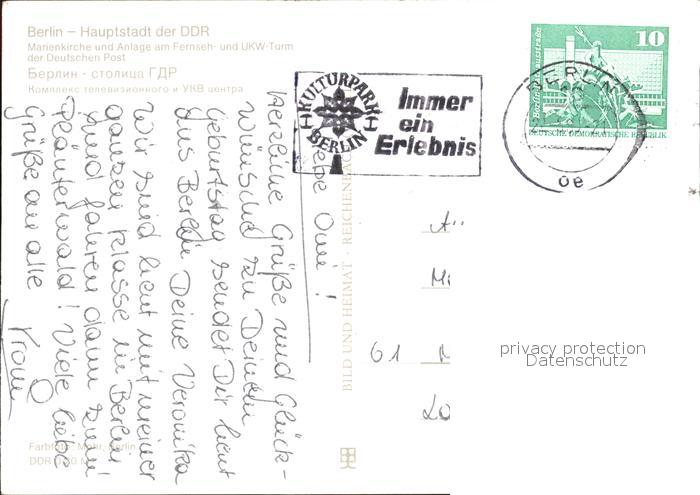 Berlin – Hauptstadt der DDR
Marienkirche und Anlage am Fernseh- und UKW-Turm
der Deutschen Post
Берлин · столица ГДР
Комплекс телевизионного и УКВ центра
KULTURPARK
BERLIN
Immer
ein
Erlebnis
10
DEUTSCHE DEMOKRATISCHE REPUBLIK
BERLIN
Liebe Omi!
Herzliche Grüße und Glück-
wünsche zu Deinem
Geburtstag sendet Dir heut
aus Berlin Deine Veronika
Wir sind heut mit meiner
ganzen Klasse in Berlin
und fahren dann zum
Plänterwald! Viele liebe
Grüße an alle
BILD UND HEIMAT · REICHENBACH
61
privacy protection
Datenschutz
Farbfoto: Mohr, Berlin
DDR